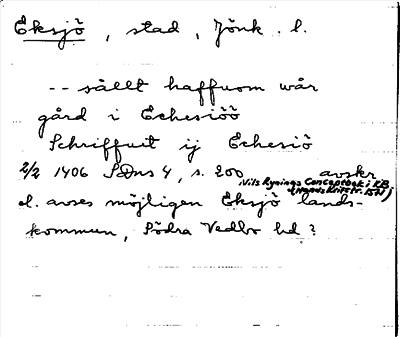 Eksjö, stad, Jönk. l.
-- sällt haffuom wår
gård i Echesiöö
Schriffuit ij Echesiö
2/2 1406 SDns 4, s. 200 avskr
Nils Rynings Conceptbok i KB
el. avses möjligen Eksjö lands-
kommun, Södra Vedbo hd?